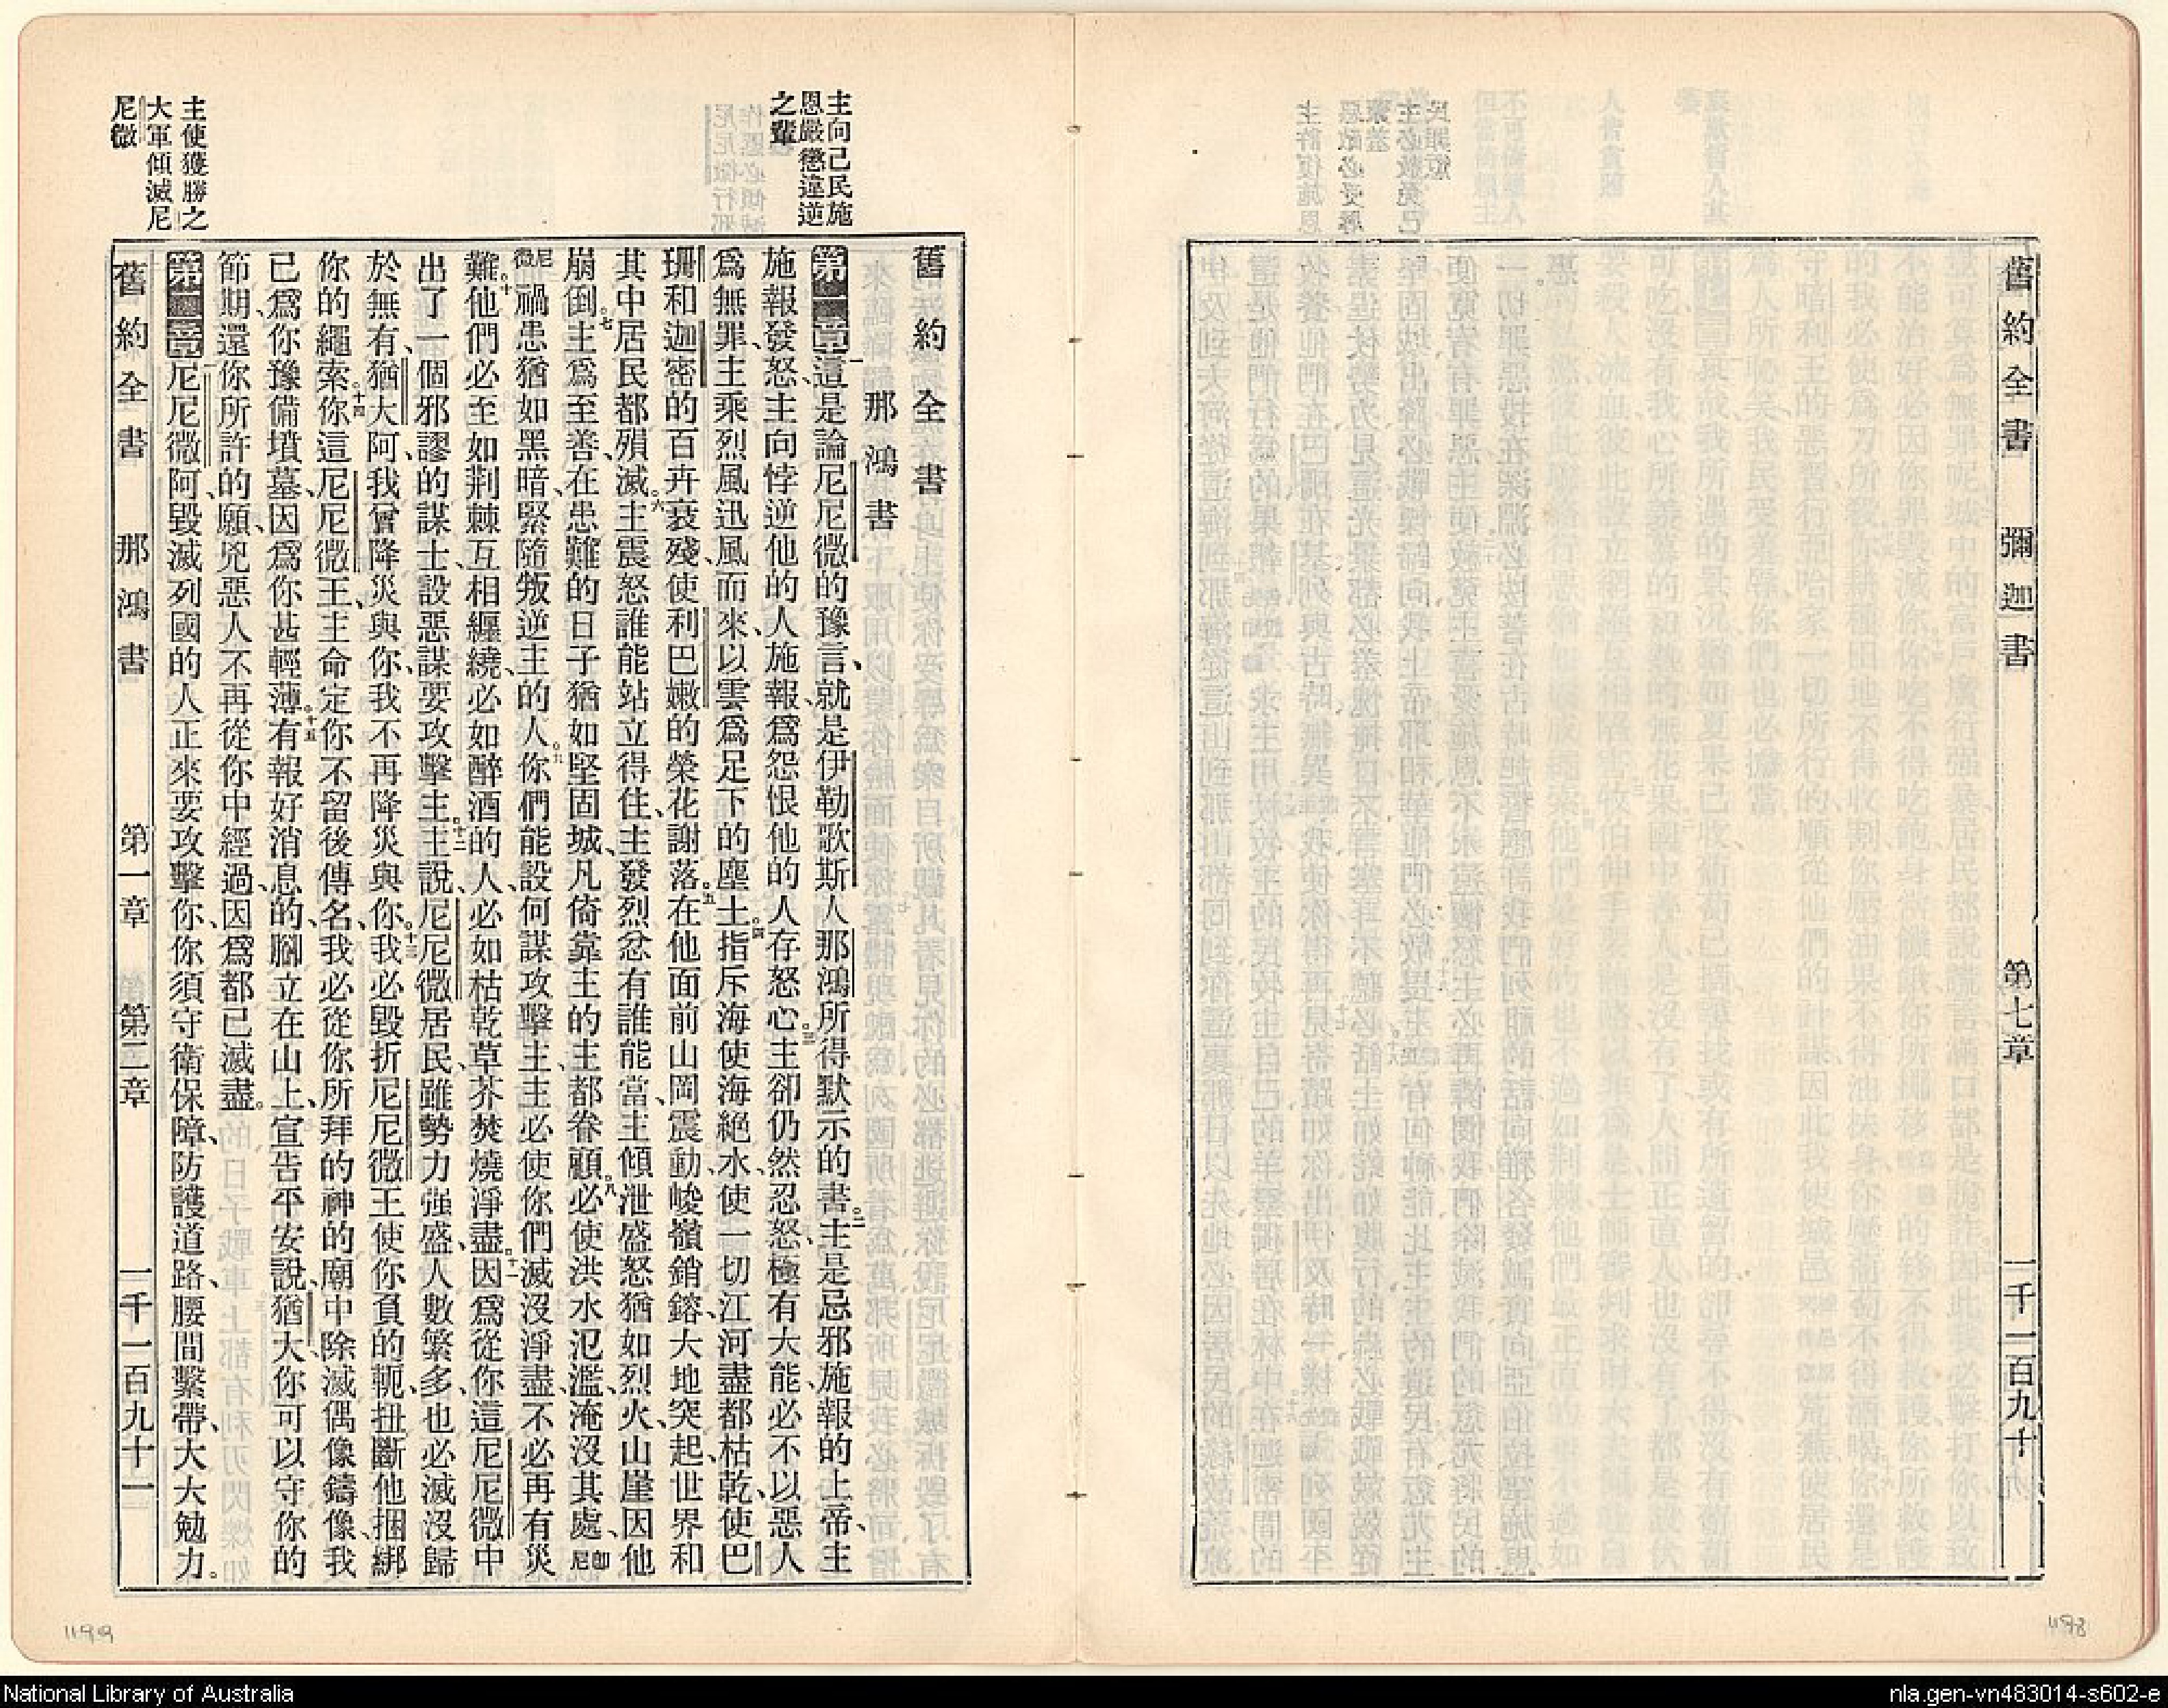 舊約全書 彌迦書 第七章 一千一百九十
主向己民施
恩嚴懲違逆
之輩
主使獲勝之
大軍傾滅尼
尼微
舊約全書
那鴻書
第一章一這是論尼尼微的豫言、就是伊勒歌斯人那鴻所得默示的書。二主是忌邪施報的上帝、主
施報發怒、主向悖逆他的人施報、爲怨恨他的人存怒心。三主卻仍然忍怒、極有大能、必不以惡人
爲無罪、主乘烈風迅風而來、以雲爲足下的塵土。四指斥海使海絕水、使一切江河盡都枯乾、使巴
珊和迦密的百卉衰殘、使利巴嫩的榮花謝落。五在他面前山岡震動、峻嶺銷鎔、大地突起、世界和
其中居民都殞滅。六主震怒誰能站立得住、主發烈忿有誰能當、主傾泄盛怒猶如烈火、山崖因他
崩倒。七主爲至善、在患難的日子猶如堅固城、凡倚靠主的主都眷顧。八必使洪水氾濫、淹沒其處、卽尼
尼微禍患猶如黑暗、緊隨叛逆主的人。九你們能設何謀攻擊主、主必使你們滅沒淨盡、不必再有災
難。十他們必至如荆棘互相纒繞、必如醉酒的人、必如枯乾草芥焚燒淨盡。十一因爲從你這尼尼微中
出了一個邪謬的謀士、設惡謀要攻擊主。十二主說、尼尼微居民、雖勢力强盛、人數繁多、也必滅沒歸
於無有、猶大阿、我曾降災與你、我不再降災與你。十三我必毀折尼尼微王使你負的軛、扭斷他捆綁
你的繩索。十四你這尼尼微王、主命定你不留後傳名、我必從你所拜的神的廟中、除滅偶像鑄像、我
已爲你豫備墳墓、因爲你甚輕薄。十五有報好消息的、腳立在山上、宣告平安說、猶大你可以守你的
節期、還你所許的願、兇惡人不再從你中經過、因爲都已滅盡。
第二章一尼尼微阿、毀滅列國的人正來要攻擊你、你須守衛保障、防護道路、腰間繫帶、大大勉力。
舊約全書 那鴻書 第一章 第二章 一千一百九十一
1199
1198
National Library of Australia
nla.gen-vn483014-s602-e